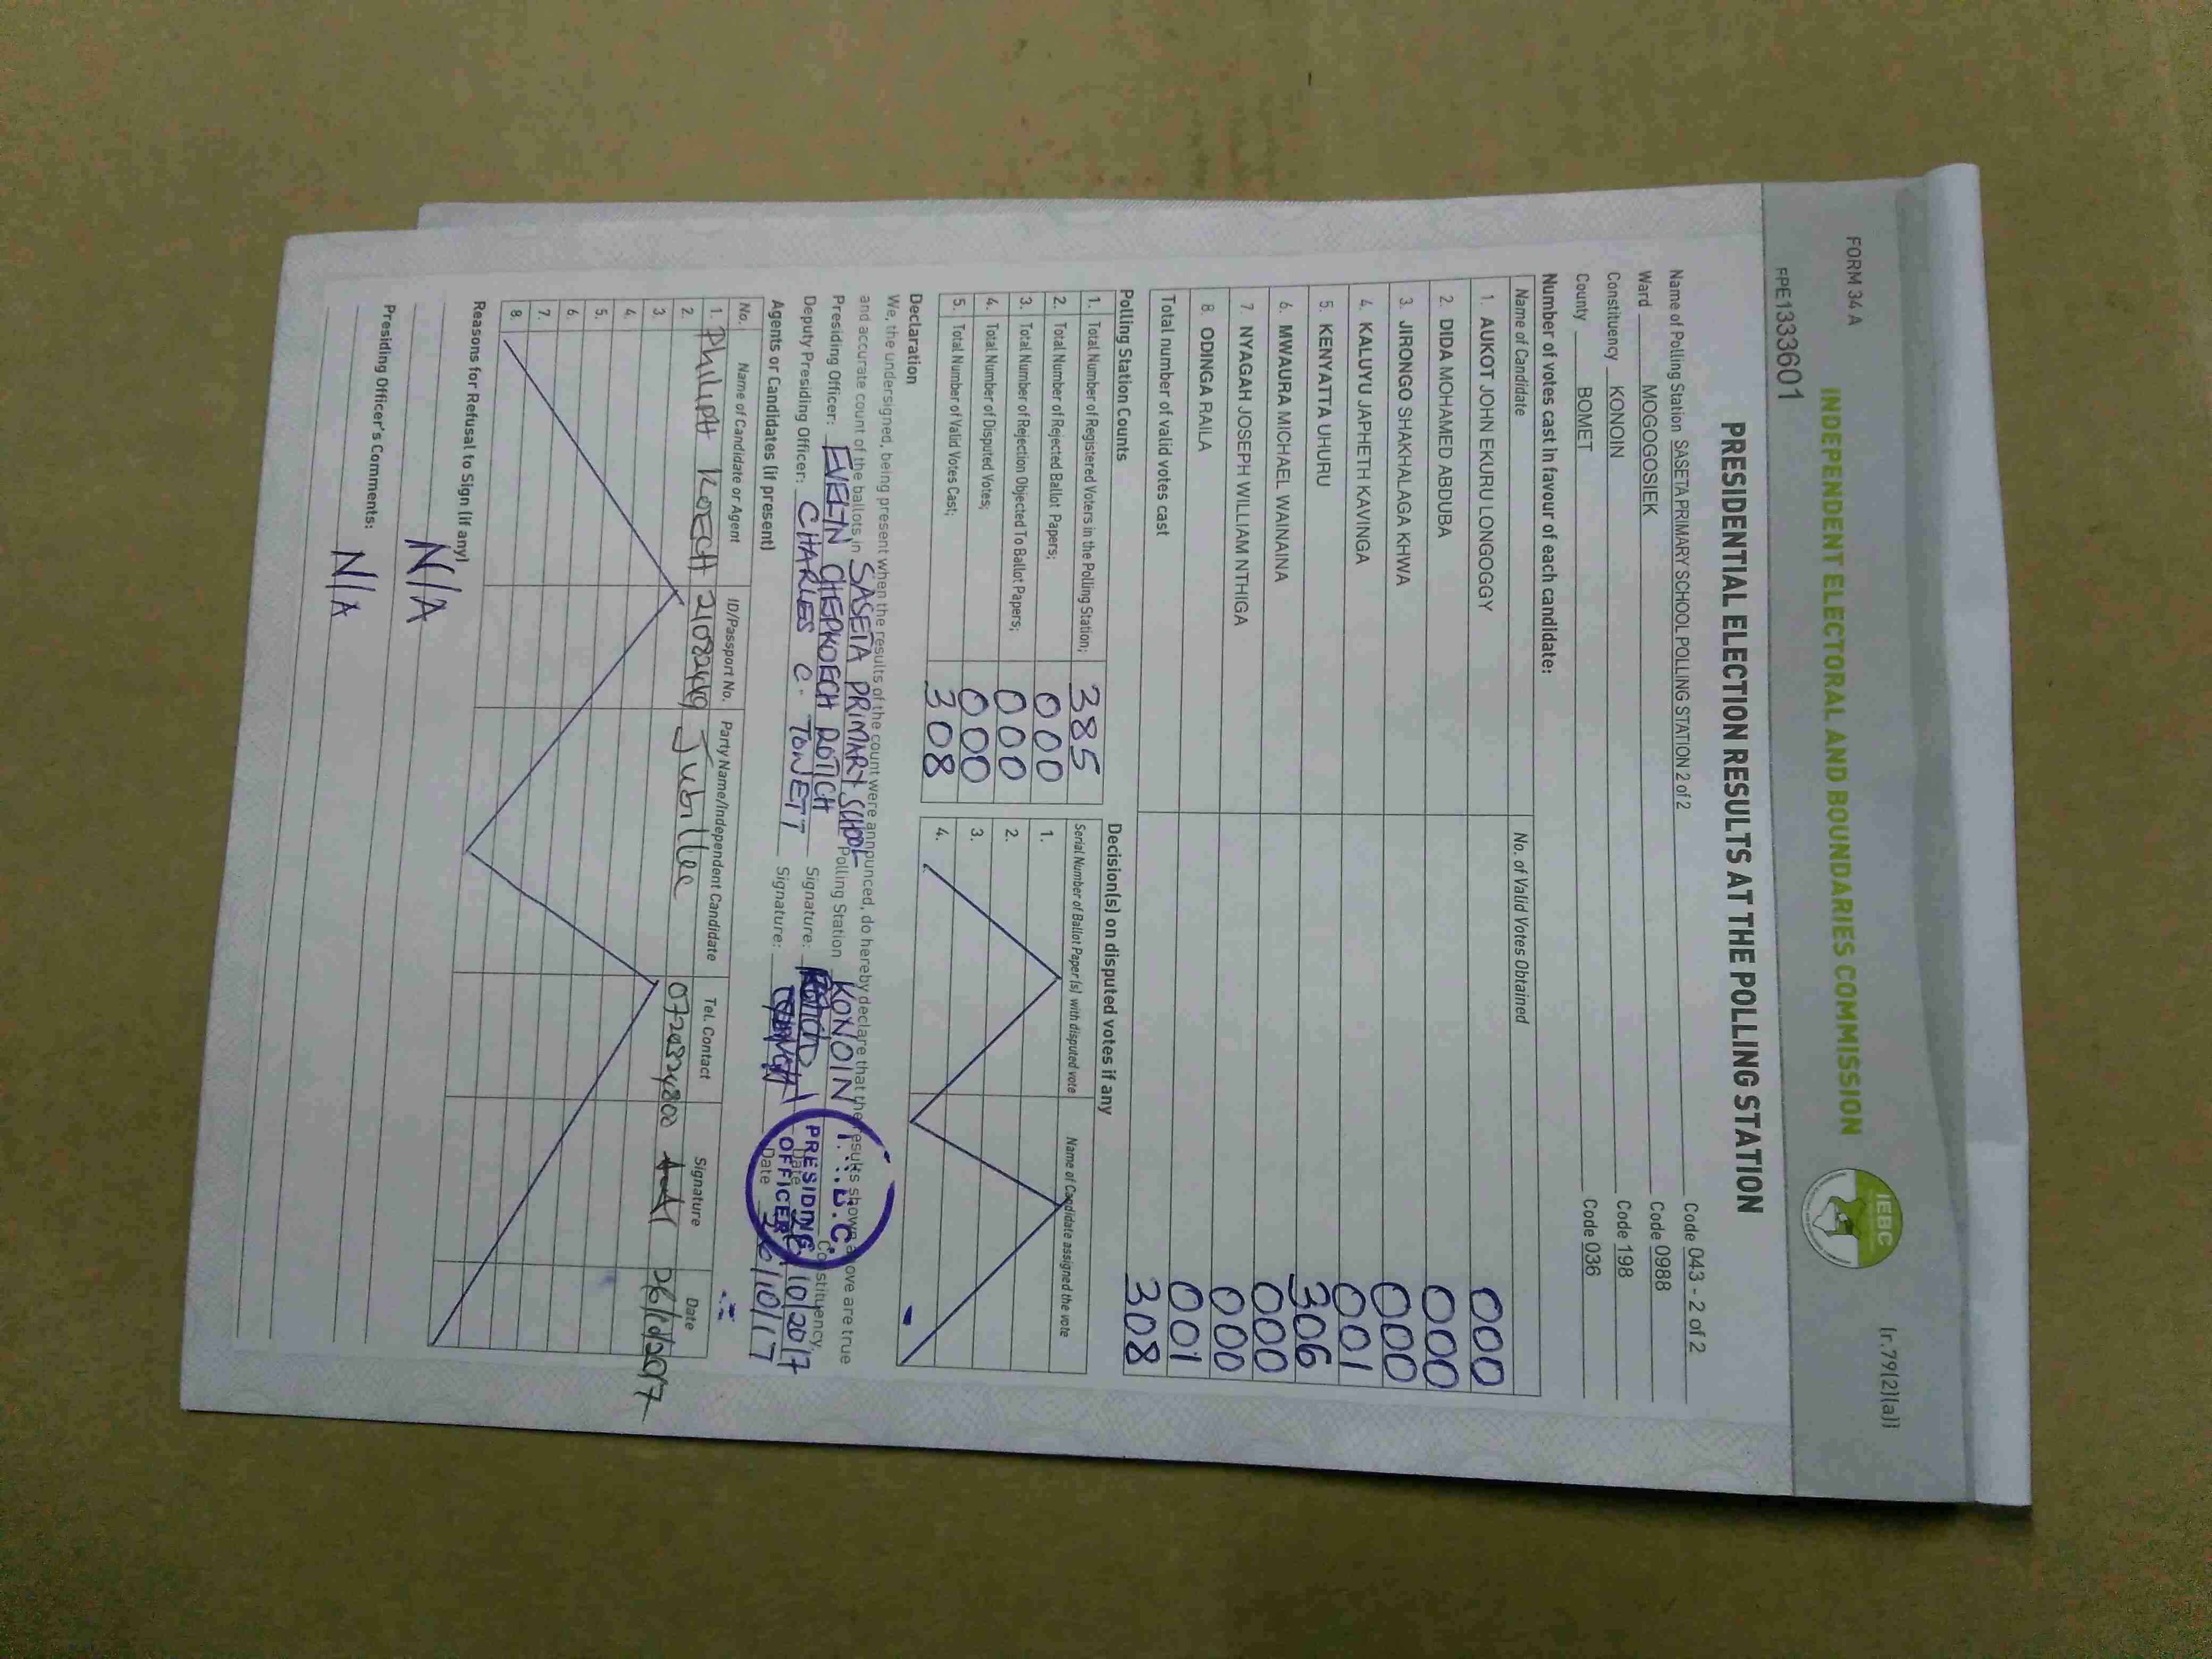 FORM 34 A
(r.79(2)(a))
INDEPENDENT ELECTORAL AND BOUNDARIES COMMISSION
IEBC
FPE1333601
PRESIDENTIAL ELECTION RESULTS AT THE POLLING STATION
Name of Polling Station SASETA PRIMARY SCHOOL POLLING STATION 2 of 2 Code 043 - 2 of 2
Ward MOGOGOSIEK Code 0988
Constituency KONOIN Code 198
County BOMET Code 036
Number of votes cast in favour of each candidate:
Name of Candidate No. of Valid Votes Obtained
1. AUKOT JOHN EKURU LONGOGGY 000
2. DIDA MOHAMED ABDUBA 000
3. JIRONGO SHAKHALAGA KHWA 000
4. KALUYU JAPHETH KAVINGA 001
5. KENYATTA UHURU 306
6. MWAURA MICHAEL WAINAINA 000
7. NYAGAH JOSEPH WILLIAM NTHIGA 000
8 ODINGA RAILA 001
Total number of valid votes cast 308
Polling Station Counts
1. Total Number of Registered Voters in the Polling Station; 385
2. Total Number of Rejected Ballot Papers; 000
3. Total Number of Rejection Objected To Ballot Papers; 000
4. Total Number of Disputed Votes; 000
5. Total Number of Valid Votes Cast; 308
Decision(s) on disputed votes if any
Serial Number of Ballot Paper(s) with disputed vote Name of Candidate assigned the vote
1.
2.
3.
4.
Declaration
We, the undersigned, being present when the results of the count were announced, do hereby declare that the results shown above are true
and accurate count of the ballots in SASETA PRIMARY SCHOOL Polling Station KONOIN Constituency.
Presiding Officer: EVELIN CHEPKOECH ROTICH Signature: Date 26/10/2017
Deputy Presiding Officer: CHARLES C. TOWETT Signature: Date 26/10/17
PRESIDING OFFICER
Agents or Candidates (if present)
No. Name of Candidate or Agent ID/Passport No. Party Name/Independent Candidate Tel. Contact Signature Date
1. Philiph Koech Jubilee 26/10/2017
2.
3.
4.
5.
6.
7.
8.
Reasons for Refusal to Sign (if any)
N/A
Presiding Officer's Comments:
N/A